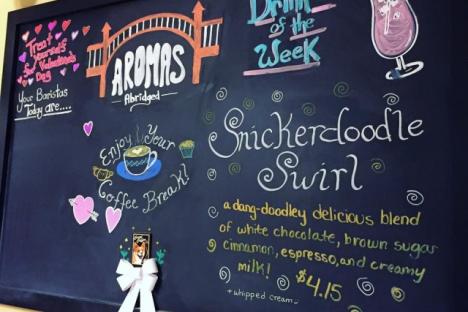 Treat
yourself
for
Valentine's
Day
Your Baristas
Today are....
AROMAS
Abridged
Drink
of the
Week
Enjoy Your
Coffee Break!
Snickerdoodle
Swirl
a dang-doodley delicious blend
of white chocolate, brown sugar
cinnamon, espresso, and creamy
milk! $4.15
+whipped cream